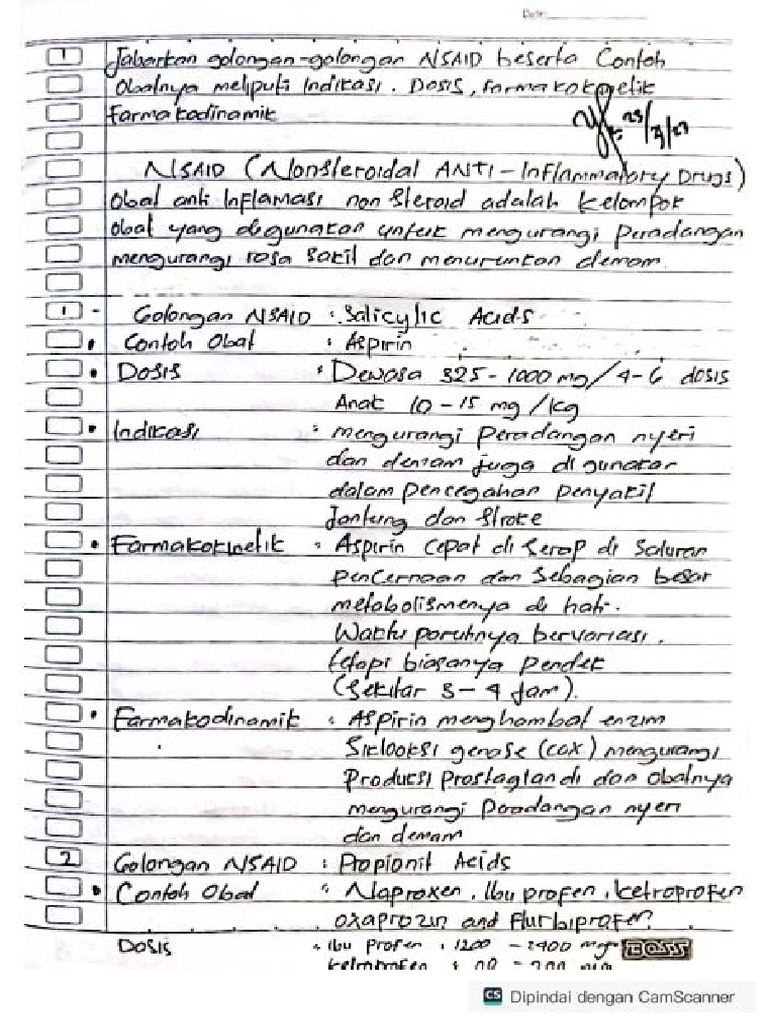 Date:
1 Jabarkan golongan-golongan NSAID beserta Contoh
Obatnya meliputi Indikasi. Dosis, farmakokinetik
farmakodinamik
NSAID (Nonsteroidal ANTI-Inflammatory Drugs)
Obat anti Inflamasi non Steroid adalah kelompok
obat yang digunakan untuk mengurangi Peradangan
mengurangi rasa sakit dan menurunkan demam.
1 - Golongan NSAID : Salicylic Acids
• Contoh Obat : Aspirin
• Dosis : Dewasa 325-1000 mg/4-6 dosis
Anak 10-15 mg/kg
• Indikasi : mengurangi Peradangan nyeri
dan demam juga di gunakan
dalam pencegahan penyakit
Jantung dan Stroke
• Farmakokinetik : Aspirin cepat di serap di Saluran
pencernaan dan Sebagian besar
metabolismenya di hati.
Waktu paruhnya bervariasi,
tetapi biasanya pendek
(Sekitar 3-4 Jam).
• Farmakodinamik : Aspirin menghambat enzim
Siklooksi genase (cox) mengurangi
Produksi Prostaglandi dan obatnya
mengurangi Peradangan nyeri
dan demam
2 Golongan NSAID : Propionit Acids
• Contoh Obat : Naproxen, Ibu profen, ketroprofen
oxaprozin and flurbiprofen
Dosis : Ibu Profen : 1200 - 2400 mg
BOSS
CS Dipindai dengan CamScanner